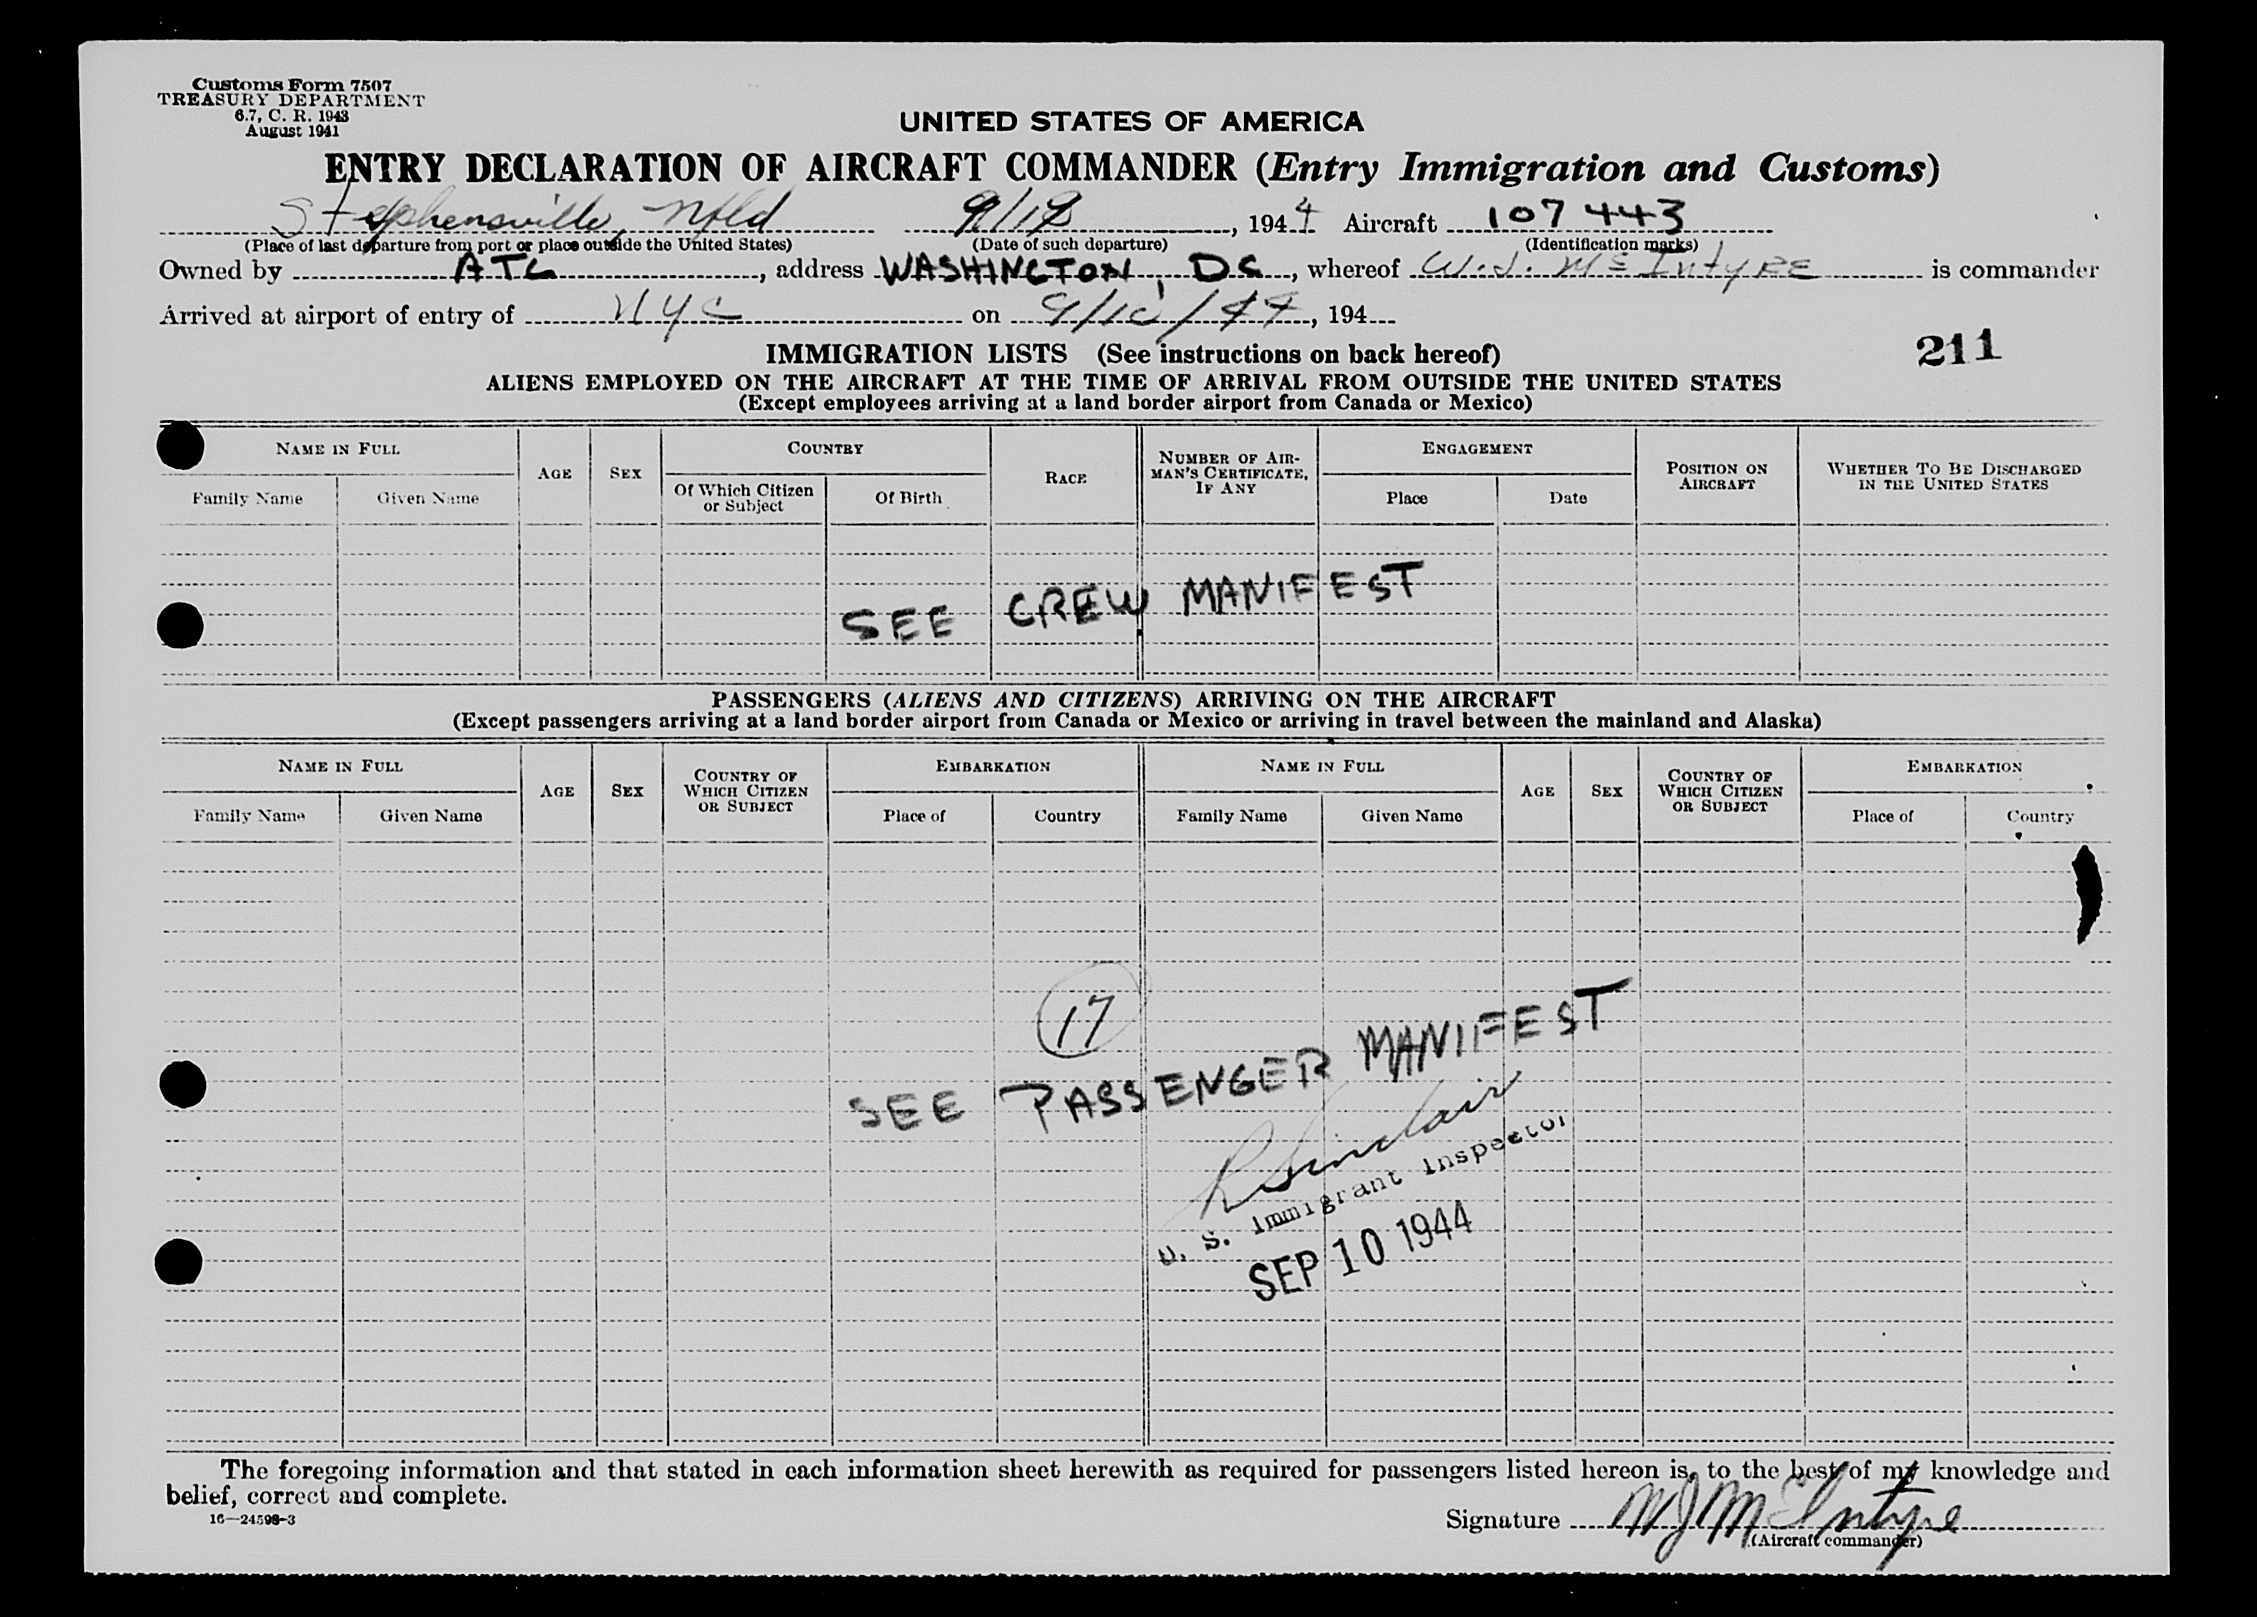 Customs Form 7507
TREASURY DEPARTMENT
6.7, C. R. 1943
August 1941
UNITED STATES OF AMERICA
ENTRY DECLARATION OF AIRCRAFT COMMANDER (Entry Immigration and Customs)
Stephensville, Nfld , 1944 Aircraft 107443
(Place of last departure from port or place outside the United States) (Date of such departure) (Identification marks)
Owned by ATC, address WASHINGTON, DC, whereof W. J. McIntyRE is commander
Arrived at airport of entry of NYC on 9/10/44, 194
211
IMMIGRATION LISTS (See instructions on back hereof)
ALIENS EMPLOYED ON THE AIRCRAFT AT THE TIME OF ARRIVAL FROM OUTSIDE THE UNITED STATES
(Except employees arriving at a land border airport from Canada or Mexico)
NAME IN FULL AGE SEX COUNTRY RACE NUMBER OF AIRMAN'S CERTIFICATE, IF ANY ENGAGEMENT POSITION ON AIRCRAFT WHETHER TO BE DISCHARGED IN THE UNITED STATES
Family Name Given Name Of Which Citizen or Subject Of Birth Place Date
SEE CREW MANIFEST
PASSENGERS (ALIENS AND CITIZENS) ARRIVING ON THE AIRCRAFT
(Except passengers arriving at a land border airport from Canada or Mexico or arriving in travel between the mainland and Alaska)
NAME IN FULL AGE SEX COUNTRY OF WHICH CITIZEN OR SUBJECT EMBARKATION NAME IN FULL AGE SEX COUNTRY OF WHICH CITIZEN OR SUBJECT EMBARKATION
Family Name Given Name Place of Country Family Name Given Name Place of Country
17
SEE PASSENGER MANIFEST
R Sinclair
U. S. Immigrant Inspector
SEP 10 1944
The foregoing information and that stated in each information sheet herewith as required for passengers listed hereon is, to the best of my knowledge and
belief, correct and complete.
16—24598-3
Signature WJ McIntyre
(Aircraft commander)